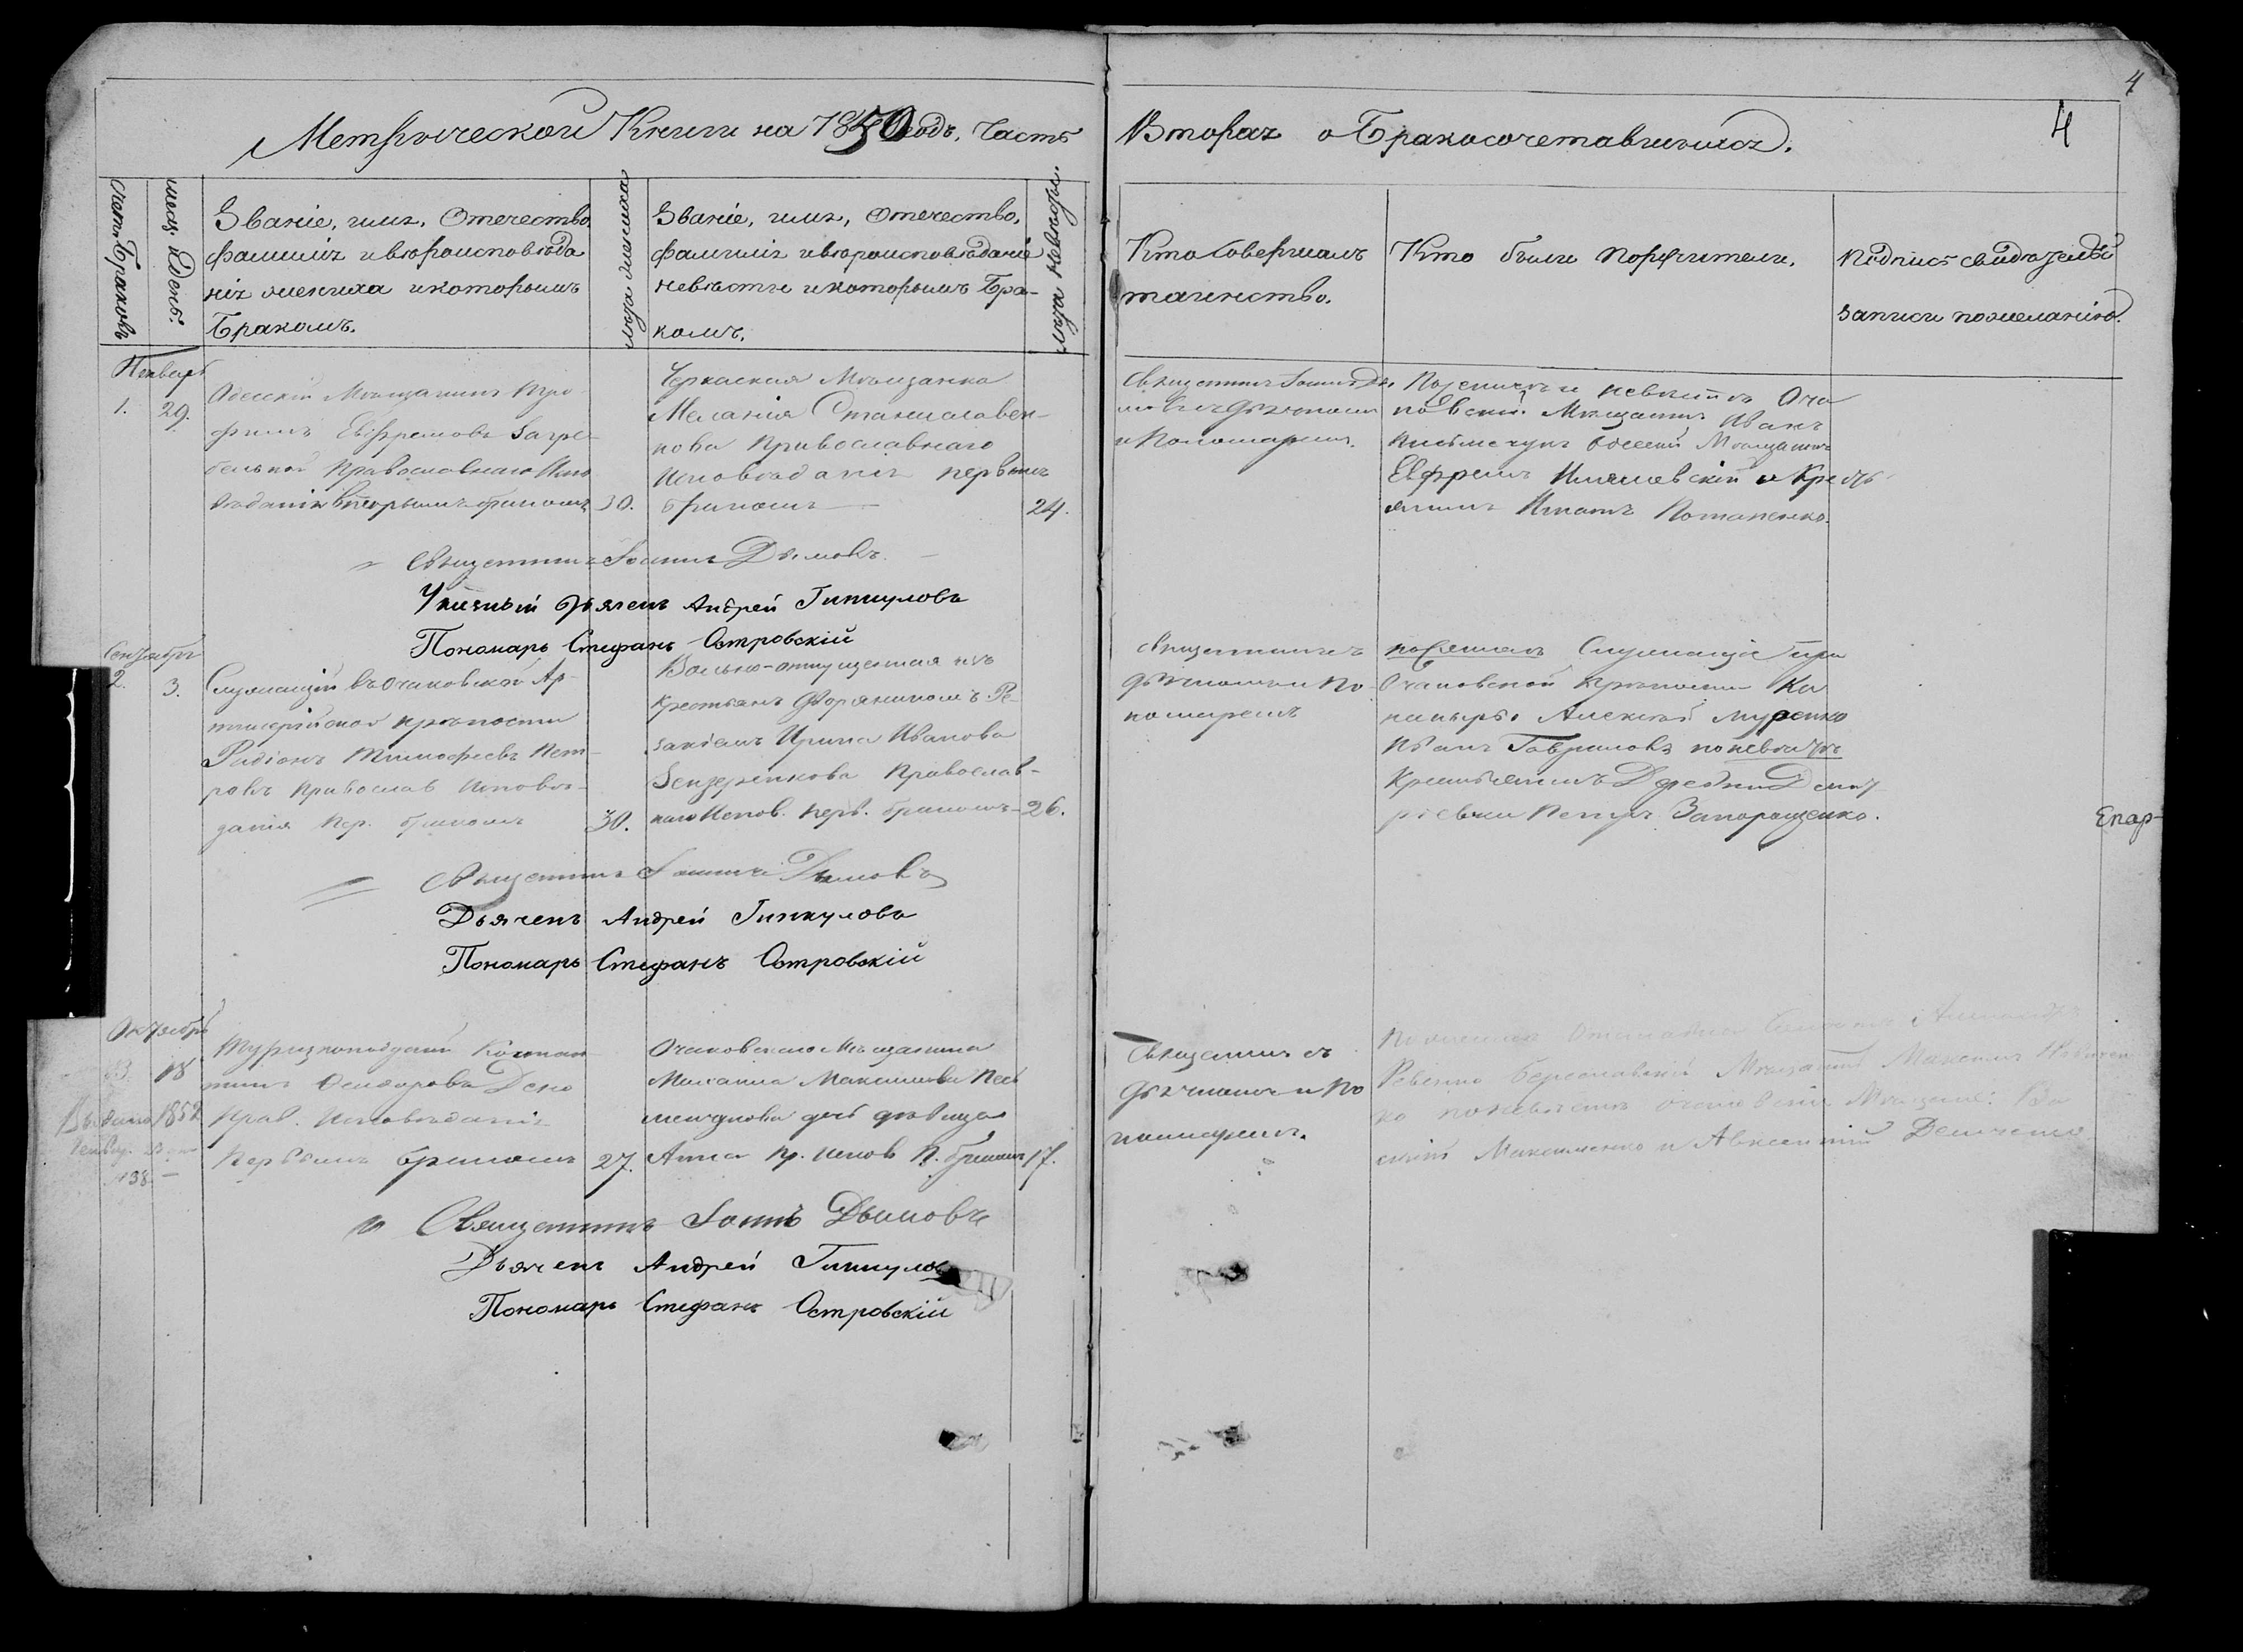 4
Метрической Книги на 1850 годъ, Часть Вторая о Бракосочетавшихся.
4
Счет. Браковъ
месяц. День.
Званіе, имя, Отечество,
фамилія и вероисповѣда
нія жениха и которымъ
Бракомъ.
лѣта жениха
Званіе, имя, Отечество,
фамилія и вѣроисповѣданіе
невѣсты и которымъ Бра-
комъ.
лѣта невѣсты.
Кто совершалъ
таинство.
Кто были поручители.
Подпись свидѣтелей
записи по желанію.
Январь
1.
29.
Одесскій Мѣщанинъ Тро-
фимъ Евфремовъ Загре-
бельной Православнаго Испо
вѣданія вторымъ бракомъ
30.
Черкаская Мѣщанка
Меланія Станиславен-
кова Православнаго
Исповѣданія первымъ
бракомъ
24.
Священникъ Іоаннъ Ды
мовъ съ дьячкомъ
и Пономаремъ.
По женихѣ и невѣстѣ Оча
ковскій Мѣщанинъ Иванъ
Письмечукъ Одесскій Мѣщанинъ
Евфремъ и Кресть
янинъ Игнатъ Потапенко.
Священникъ Іоаннъ Дымовъ.
Дьячекъ Андрей Гинкуловъ
Пономарь Стефанъ Островскій
Сентябрь
2.
3.
Служащій въ Очаковской Ар-
тилерійской крѣпости
Радіонъ Тимофеевъ Пет-
ровъ Православ Исповѣ-
данія пер. бракомъ
30.
Вольно-отпущенная изъ
крестьянъ Дворяниномъ Ре-
Ирина Иванова
Православ-
наго Испов. перв. бракомъ
26.
Священникъ съ
дьячкомъ и По-
номаремъ
по женихѣ Служащіе при
Очаковской крѣпости Ка
Алексѣй Муренко
Иванъ Гавриловъ по невѣстѣ
Крестьянинъ Деревни Дмит
ріевки Петръ Запорощенко.
Епар-
Священникъ Іоаннъ Дымовъ
Дьячекъ Андрей Гинкуловъ
Пономарь Стефанъ Островскій
Октябрь
3
18
Выдано 1852
Генвар.
38.
Турецкоподданій Констан
тинъ Деко
Прав. Исповѣданія
Первымъ бракомъ
27.
Очаковскаго Мѣщанина
Максимова Пись
менчукова дочь дѣвица
Анна пр. испов п. бракомъ
17.
Священникъ съ
дьячкомъ и По
номаремъ.
Ревенко Бериславскій Мѣщанинъ Максимъ
ко по невѣстѣ очаковскіе Мѣщане: Ва
силій Максименко и Авксентій Демченко
Священникъ Іоаннъ Дымовъ
Дьячекъ Андрей Гинкуловъ
Пономарь Стефанъ Островскій